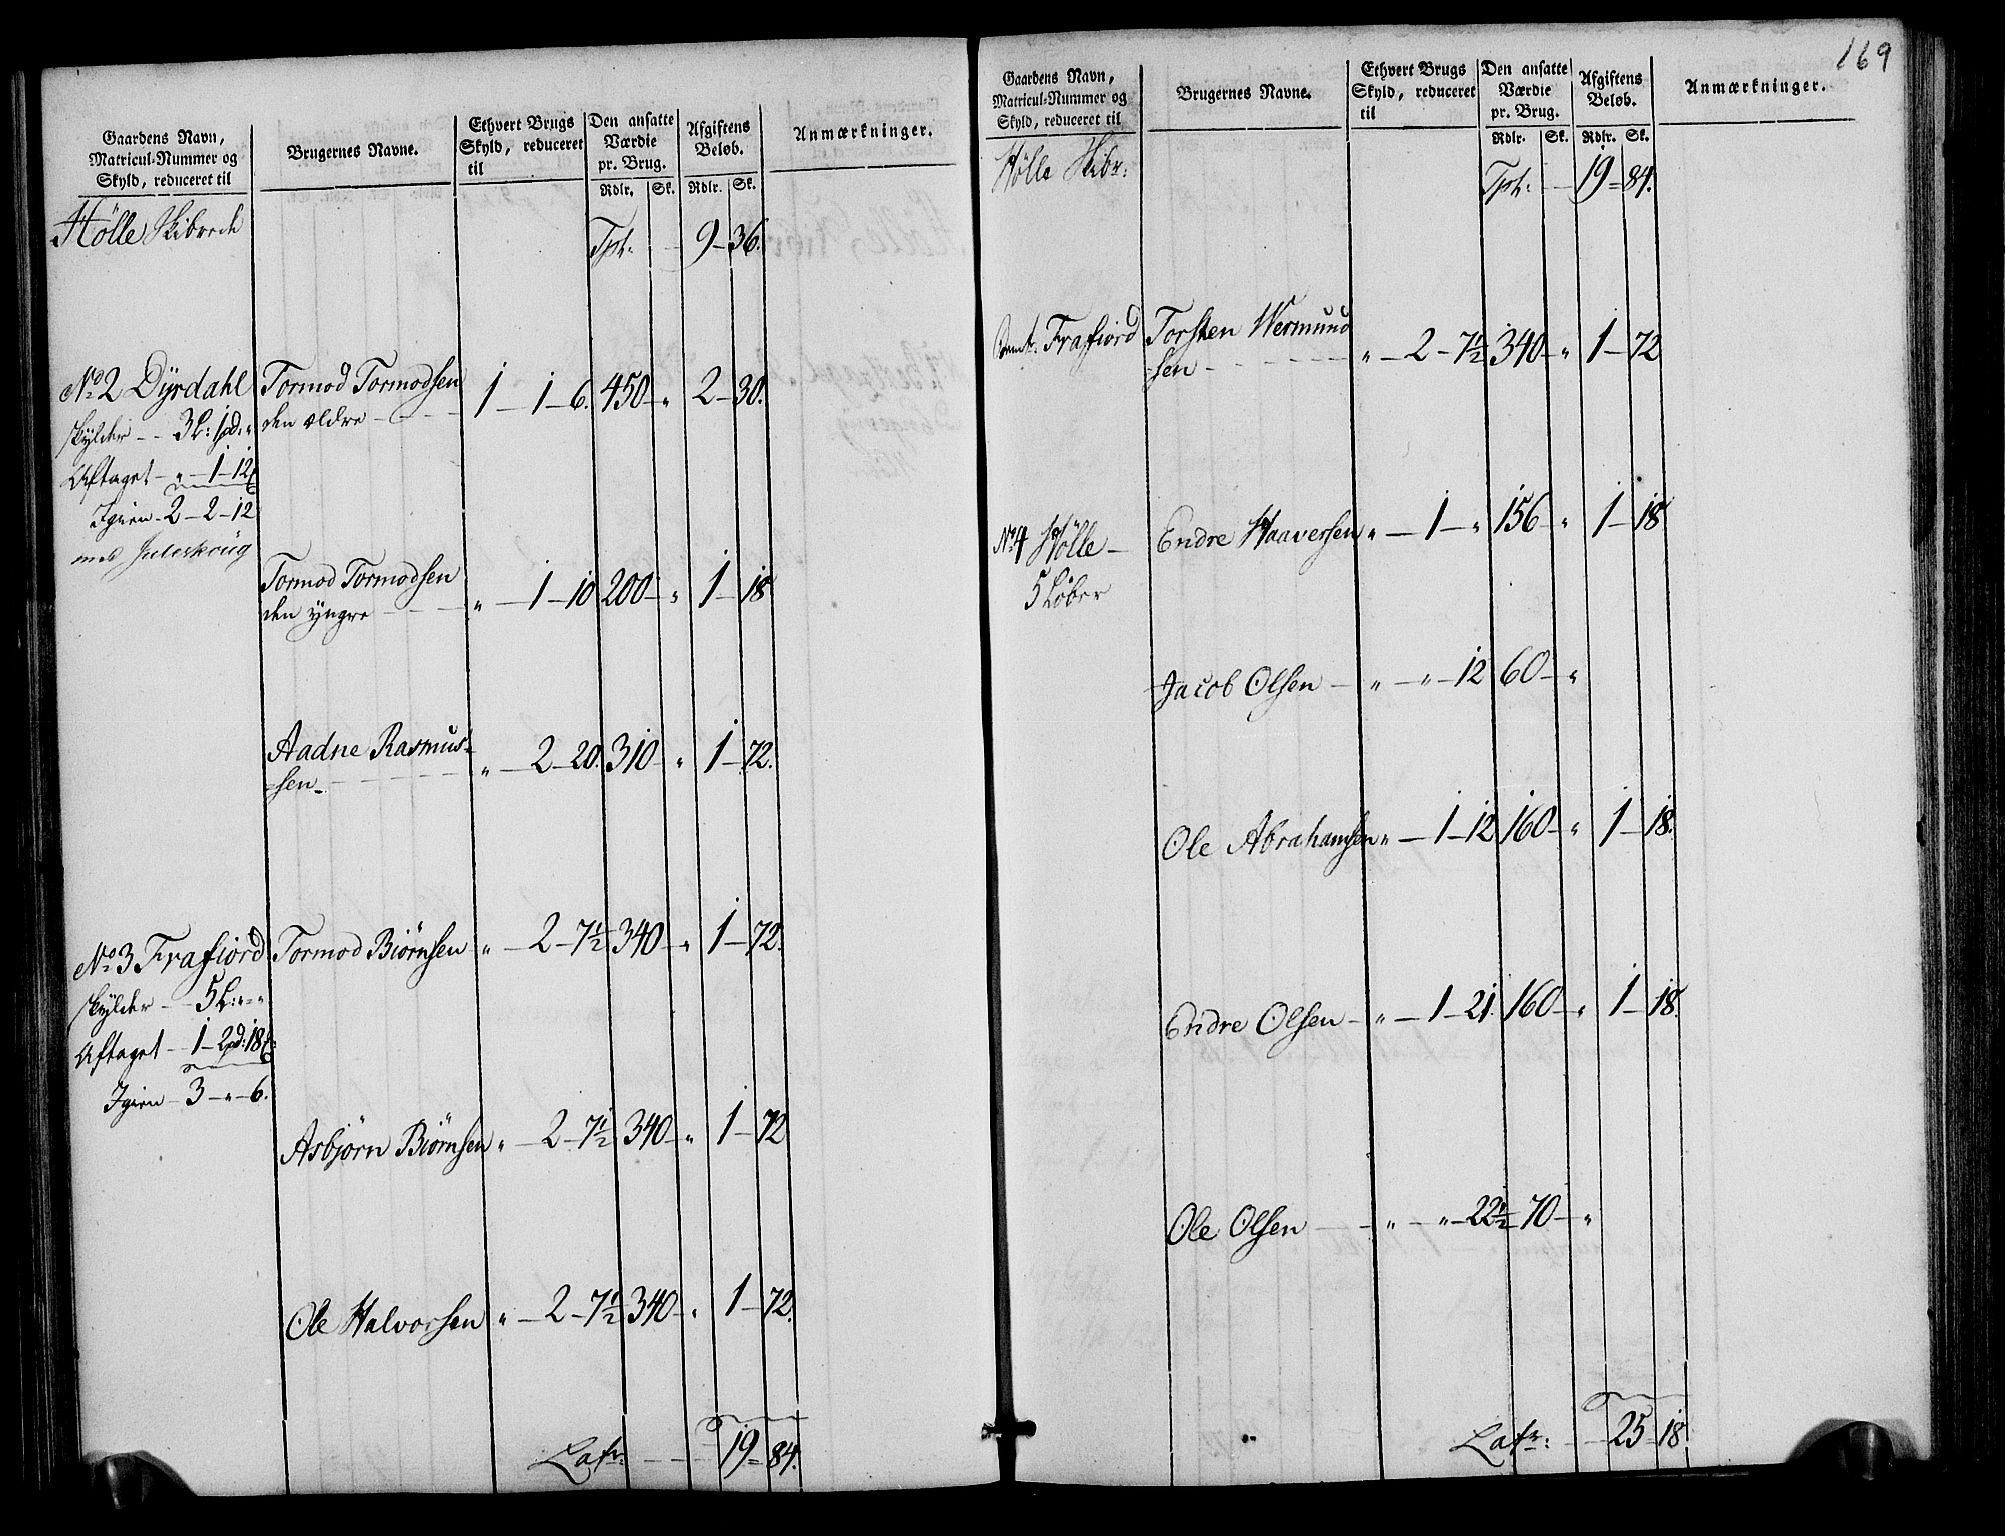 Gaardens Navn,
Matricul-Nummer og
Skyld, reduceret til
Brugernes Navne.
Ethvert Brugs
Skyld, reduceret
til
Den ansatte
Værdie
pr. Brug.
Rdlr. Sk.
Afgiftens
Beløb.
Rdlr. Sk.
Anmærkninger.
Hölle Skibrede
Tpt: 9 – 36.
No 2 Dÿrdahl Tormod Tormodsen 1 – 1 – 6. 450 – " 2 – 30.
skylder – – 3 L: 1 pd: " den ældre
Aftaget – " – 1 – 12
Igien – 2 – 2 – 12
med
Tormod Tormodsen " – 1 – 10 200 – " 1 – 18
den ÿngre
Aadne Rasmus- " – 2 – 20. 310 – " 1 – 72.
sen
No 3 Frafiord Tormod Biörnsen " – 2 – 7½ 340 – " 1 – 72.
skylder – 5 L: " – "
Aftaget – 1 – 2 pd: 18
Igien – 3 – " – 6.
Asbjörn Biörnsen " – 2 – 7½ 340 – " 1 – 72
Ole Halvorsen " – 2 – 7½ 340 – " 1 – 72.
Latr: 19 – 84.
169
Gaardens Navn,
Matricul-Nummer og
Skyld, reduceret til
Brugernes Navne.
Ethvert Brugs
Skyld, reduceret
til
Den ansatte
Værdie
pr. Brug.
Rdlr. Sk.
Afgiftens
Beløb.
Rdlr. Sk.
Anmærkninger.
Hölle Skibr:
Tpt: 19 – 84.
Frafiord Torsten Wermund " – 2 – 7½ 340 – " 1 – 72
sen
No 4 Hölle – Endre Haaversen " – 1 – " 156 – " 1 – 18
5 Löber
Jacob Olsen – " – " – 12 60 – "
Ole Abrahamsen " – 1 – 12 160 – " 1 – 18.
Endre Olsen – " – 1 – 21. 160 – " 1 – 18.
Ole Olsen " – " – 22½ 70 – "
Latr: 25 – 18.